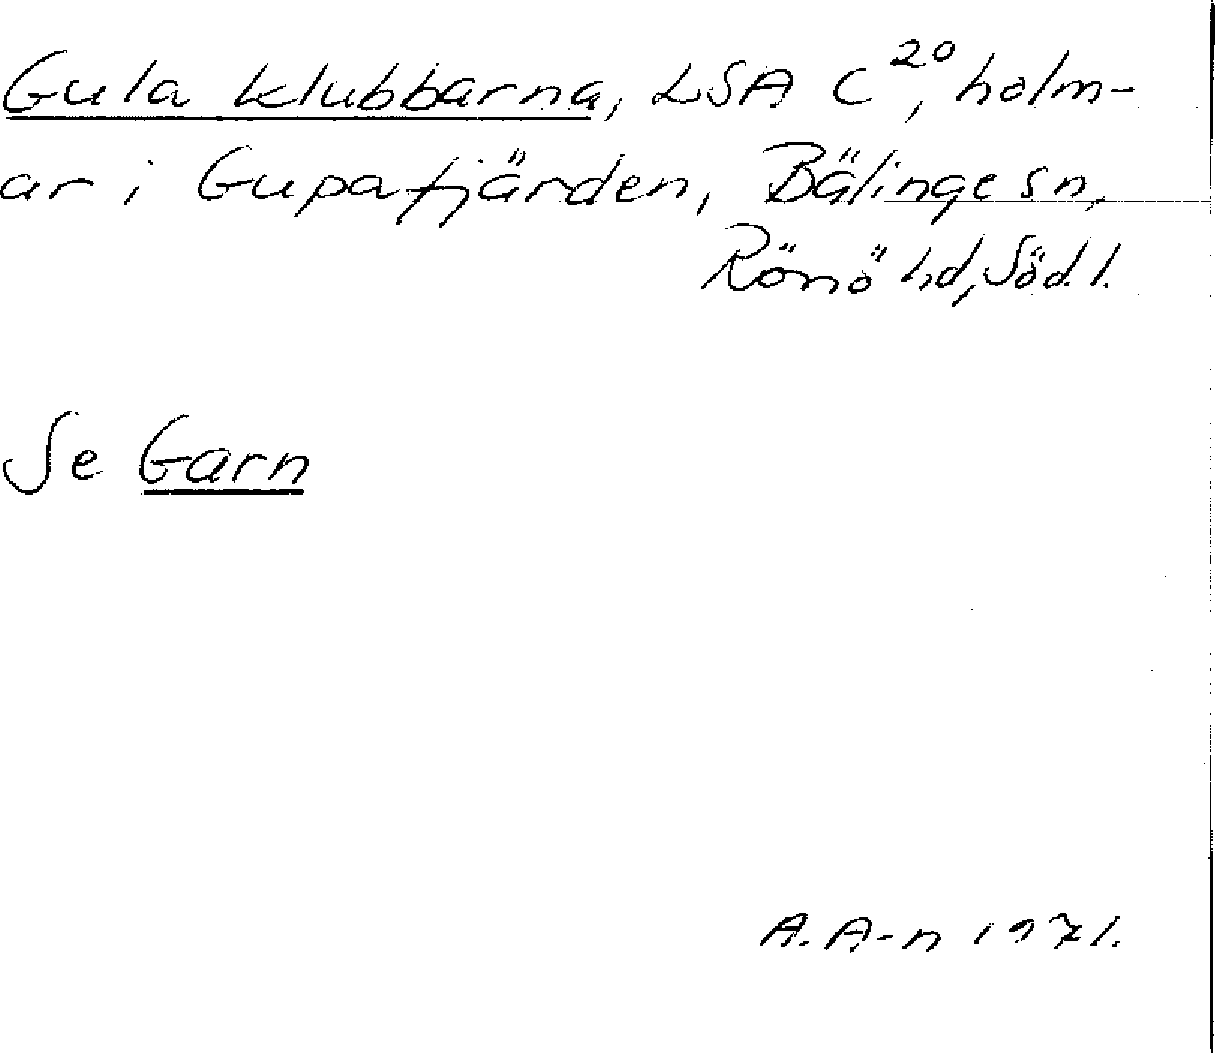 Gula klubbarna, LSA C²⁰, holm-
ar i Gupafjärden, Bälinge sn,
Rönö hd, Söd.l.
Se Garn
A. A-n 1971.